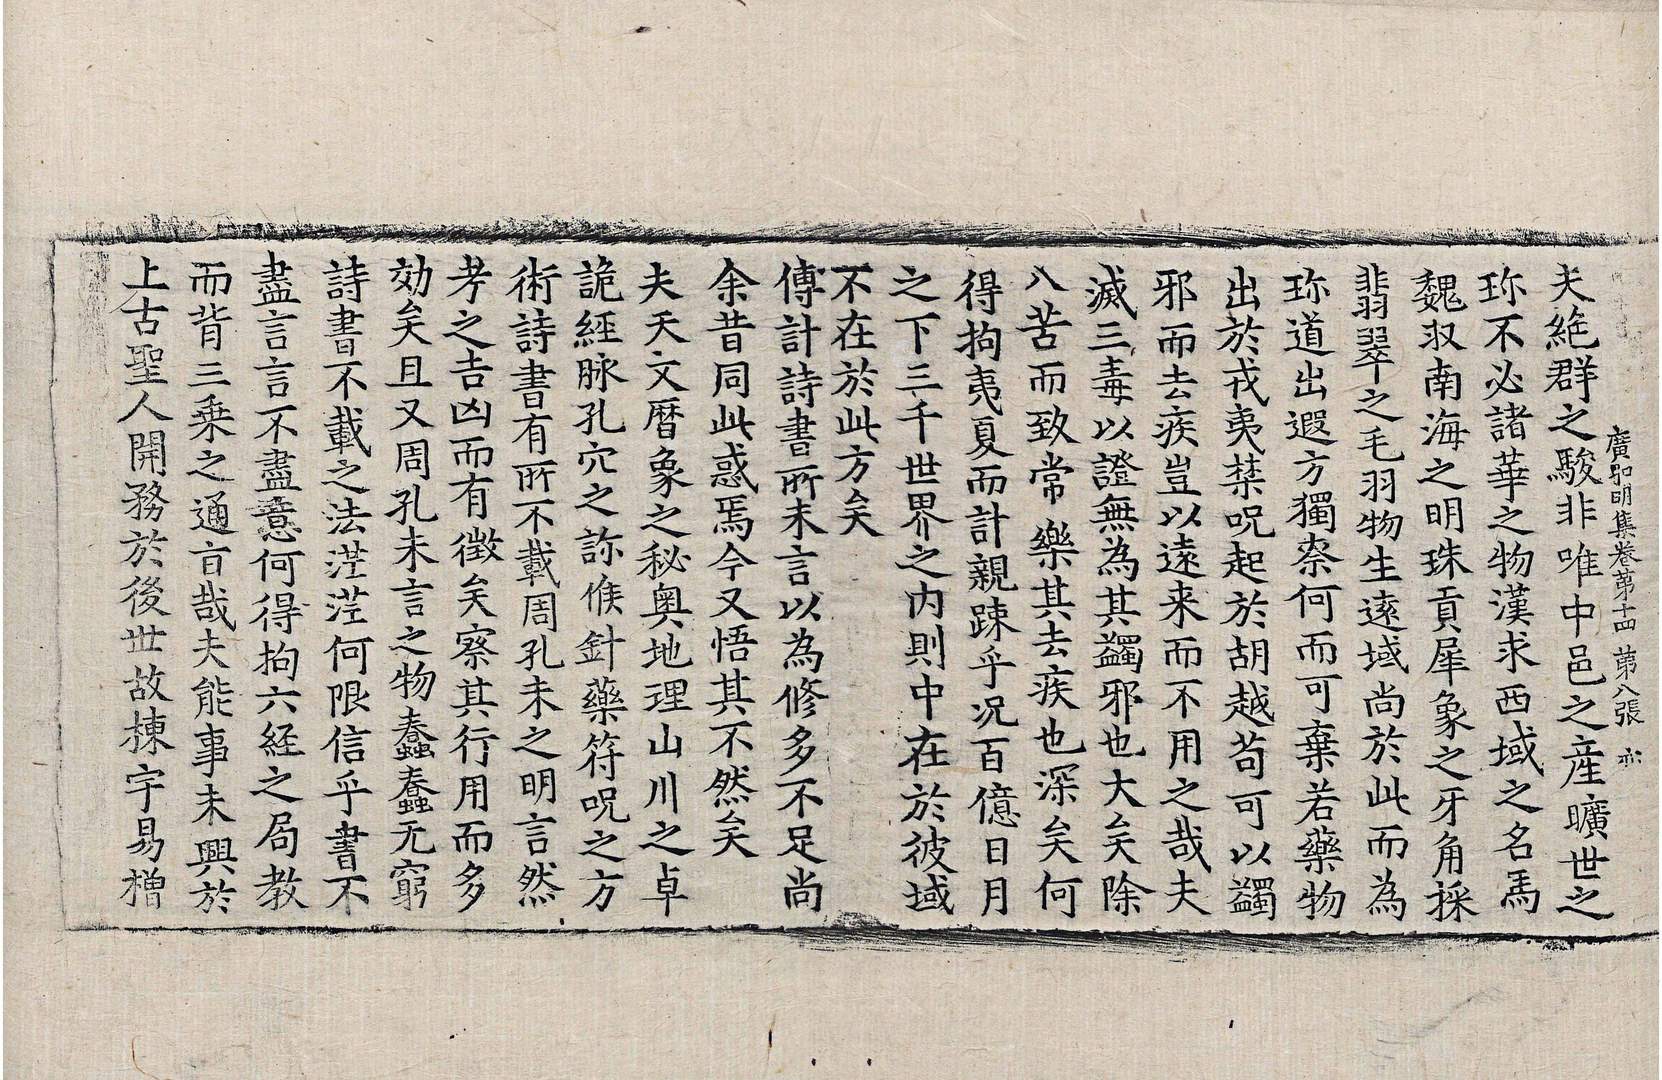 廣弘明集卷第十四 第八張
夫絶群之駿非唯中邑之産曠世之
珎不必諸華之物漢求西域之名馬
魏収南海之明珠貢犀象之牙角採
翡翠之毛羽物生遠域尚於此而為
珎道出遐方獨奈何而可棄若藥物
出於戎夷禁呪起於胡越苟可以蠲
邪而去疾豈以遠来而不用之哉夫
滅三毒以證無為其蠲邪也大矣除
八苦而致常樂其去疾也深矣何
得拘夷夏而計親踈乎况百億日月
之下三千世界之内則中在於彼域
不在於此方矣
傅計詩書所未言以為修多不足尚
余昔同此惑焉今又悟其不然矣
夫天文曆象之秘奥地理山川之卓
詭經脉孔穴之診候針藥符呪之方
術詩書有所不載周孔未之明言然
考之吉凶而有徵矣察其行用而多
効矣且又周孔未言之物蠢蠢无窮
詩書不載之法茫茫何限信乎書不
盡言言不盡意何得拘六経之局教
而背三乗之通㫖哉夫能事未興於
上古聖人開務於後世故棟宇易橧